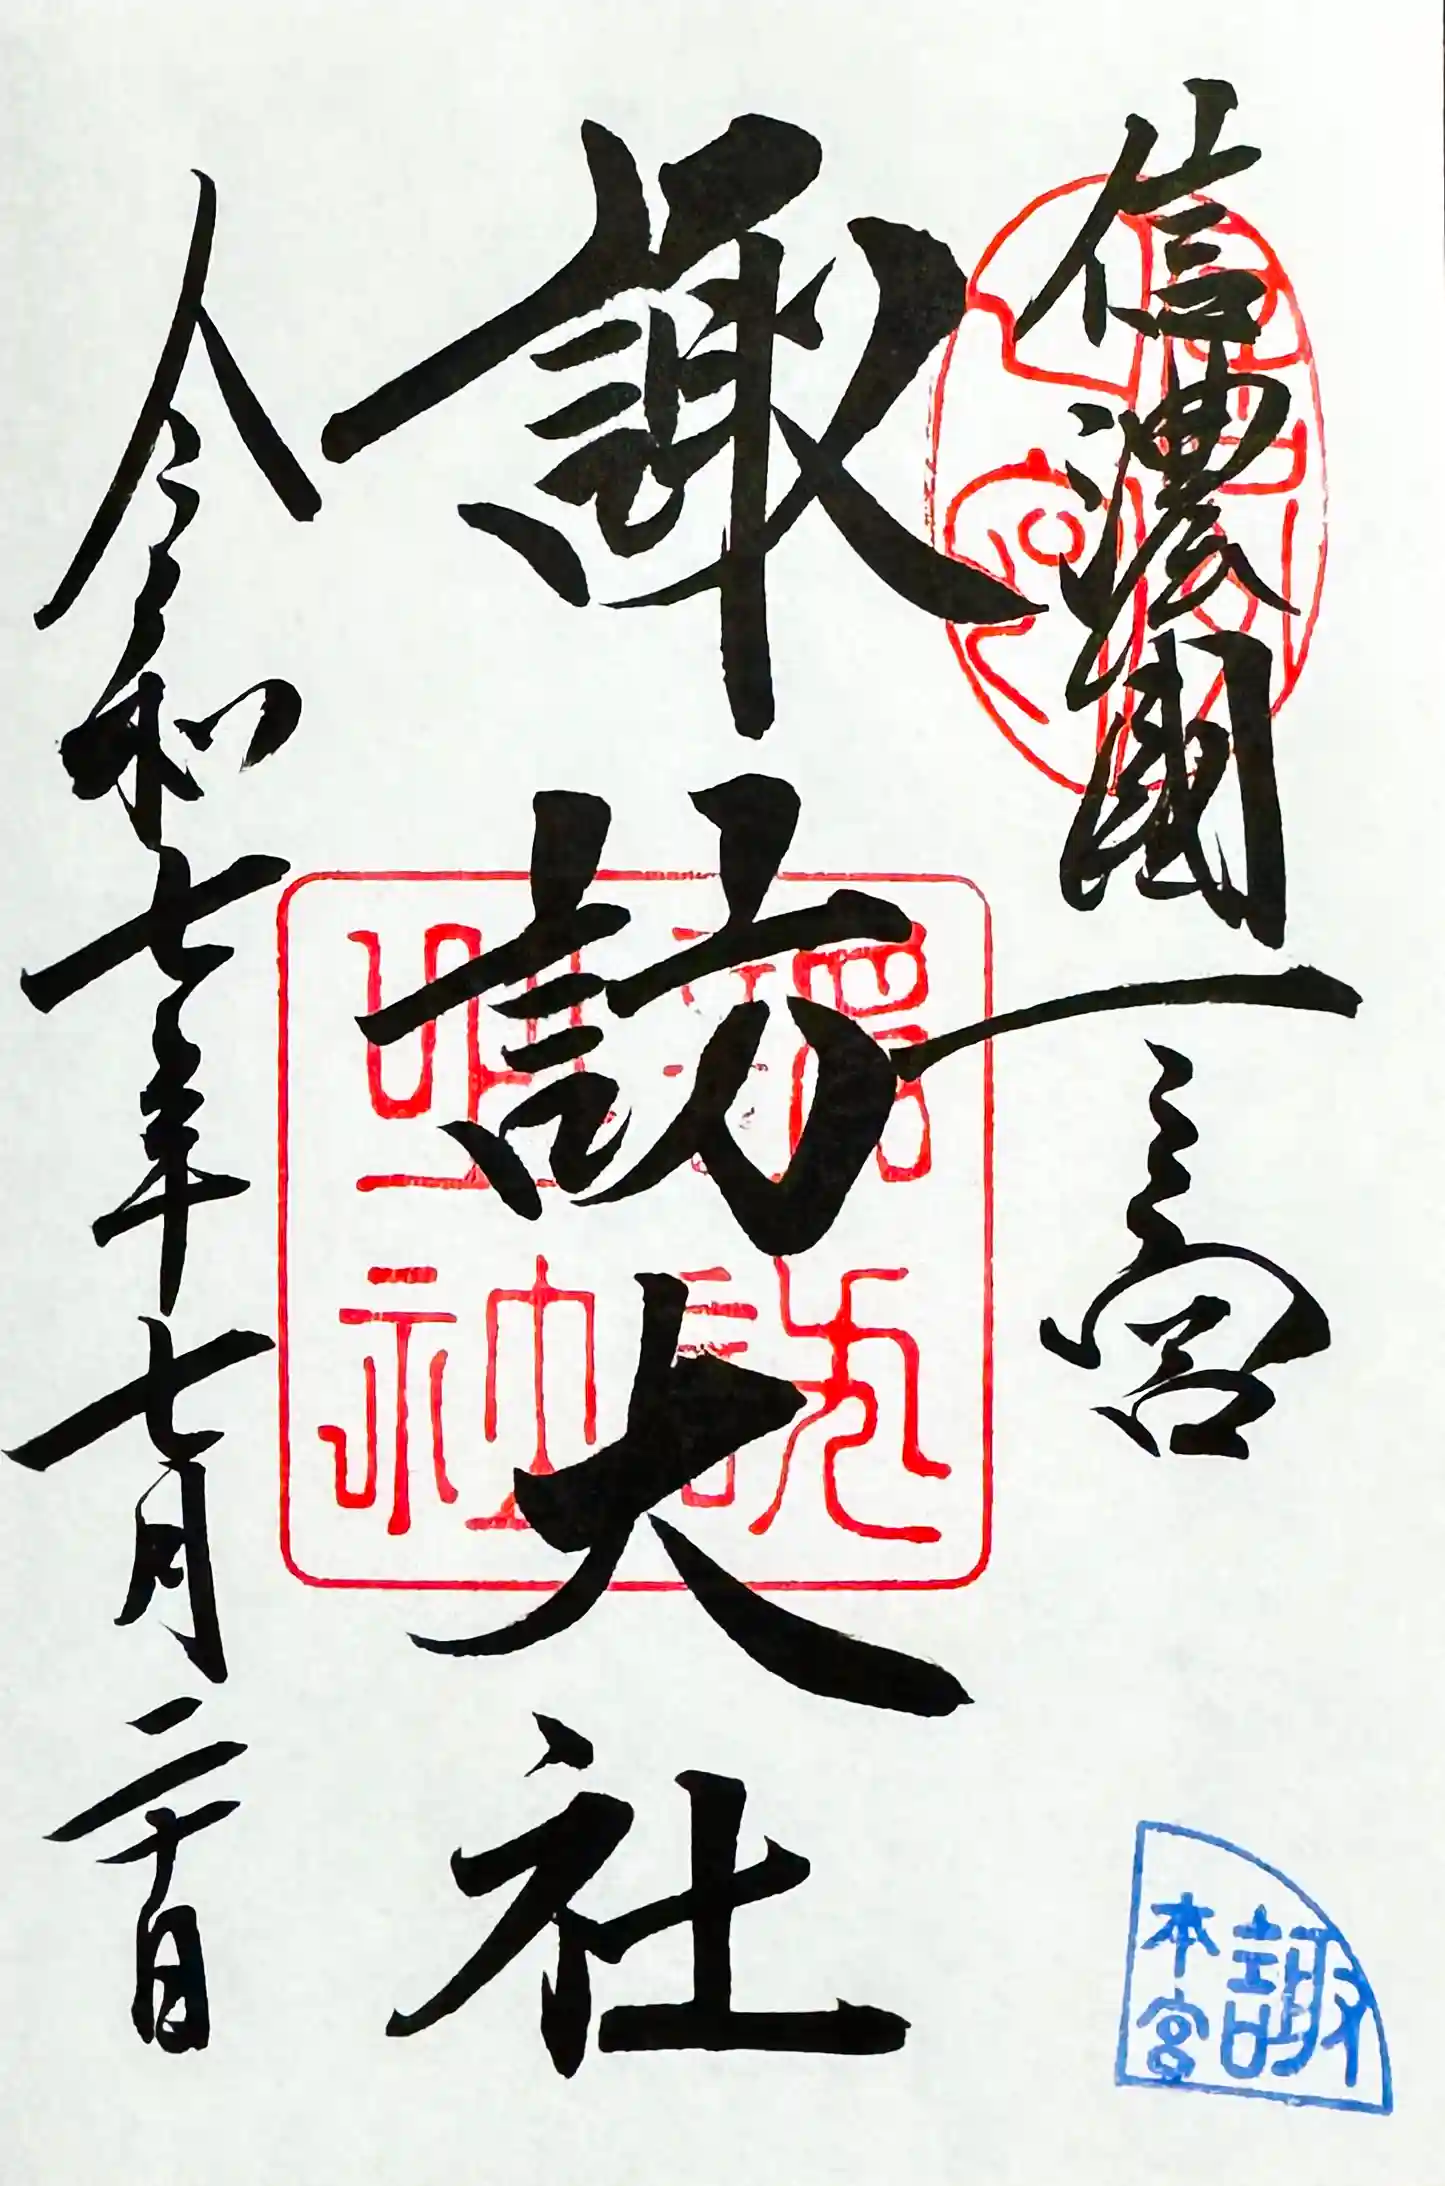 信濃國一之宮
諏訪大社
令和七年七月二十日
諏方明神
諏
本宮